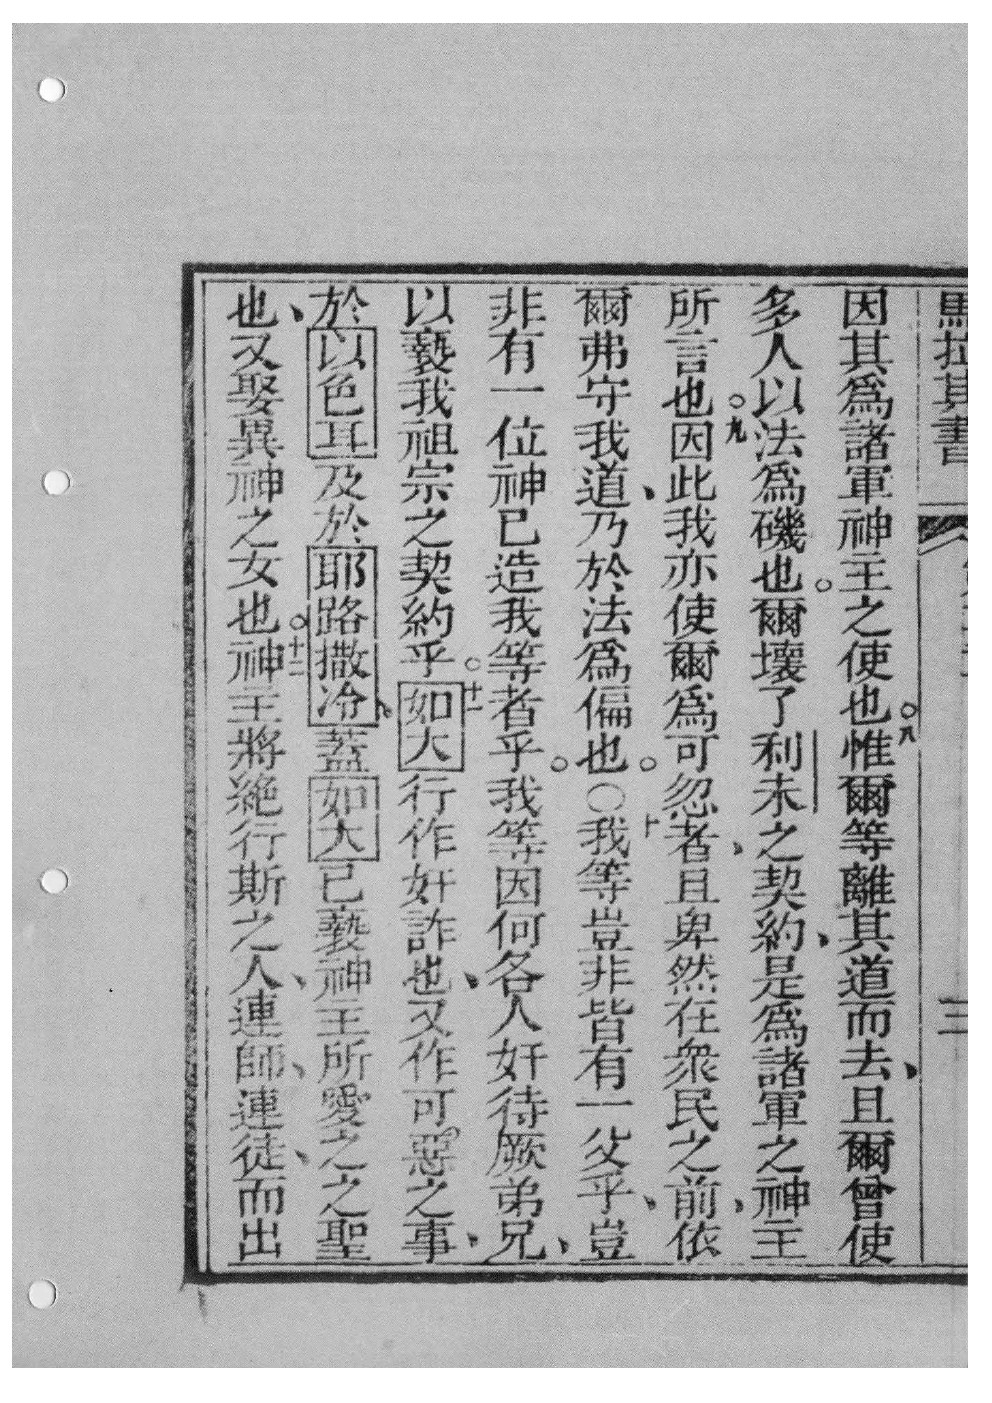 馬拉其書
三
因其爲諸軍神主之使也。八惟爾等離其道而去、且爾曾使
多人以法爲磯也。爾壞了利未之契約、是爲諸軍之神主
所言也。九因此我亦使爾爲可忽者、且卑然在衆民之前、依
爾弗守我道、乃於法爲偏也。○十我等豈非皆有一父乎、豈
非有一位神已造我等者乎。我等因何各人奸待厥弟兄、
以褻我祖宗之契約乎。十一如大行作奸詐也、又作可惡之事、
於以色耳及於耶路撒冷、蓋如大已褻神主所愛之之聖
也、又娶異神之女也。十二神主將絶行斯之人、連師、連徒、而出